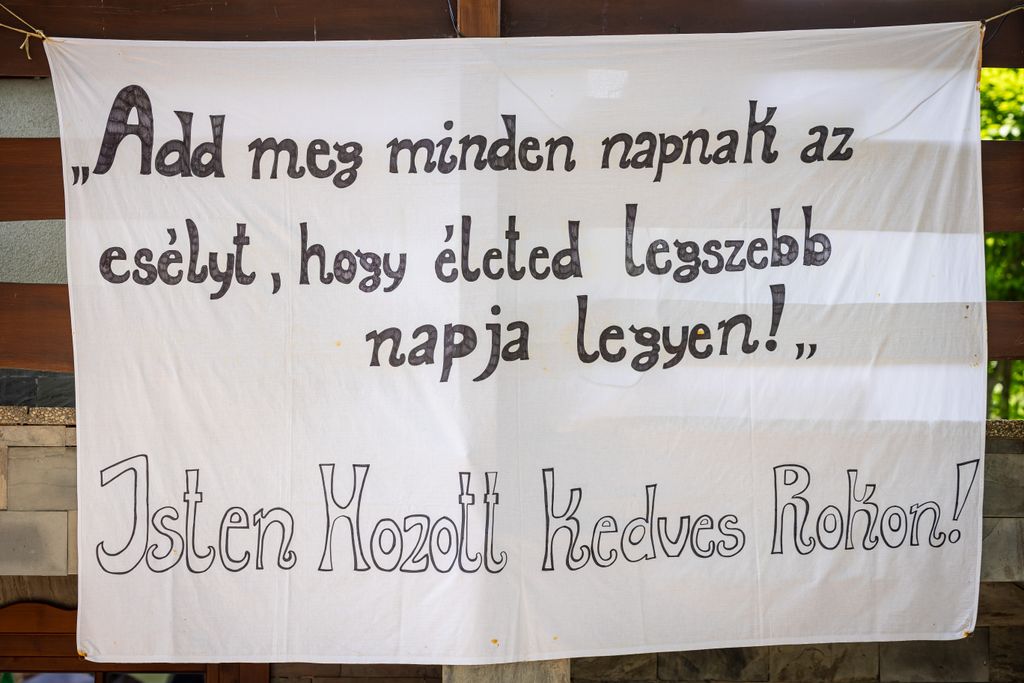 „Add meg minden napnak az
esélyt, hogy életed legszebb
napja legyen!„
Isten Hozott Kedves Rokon!